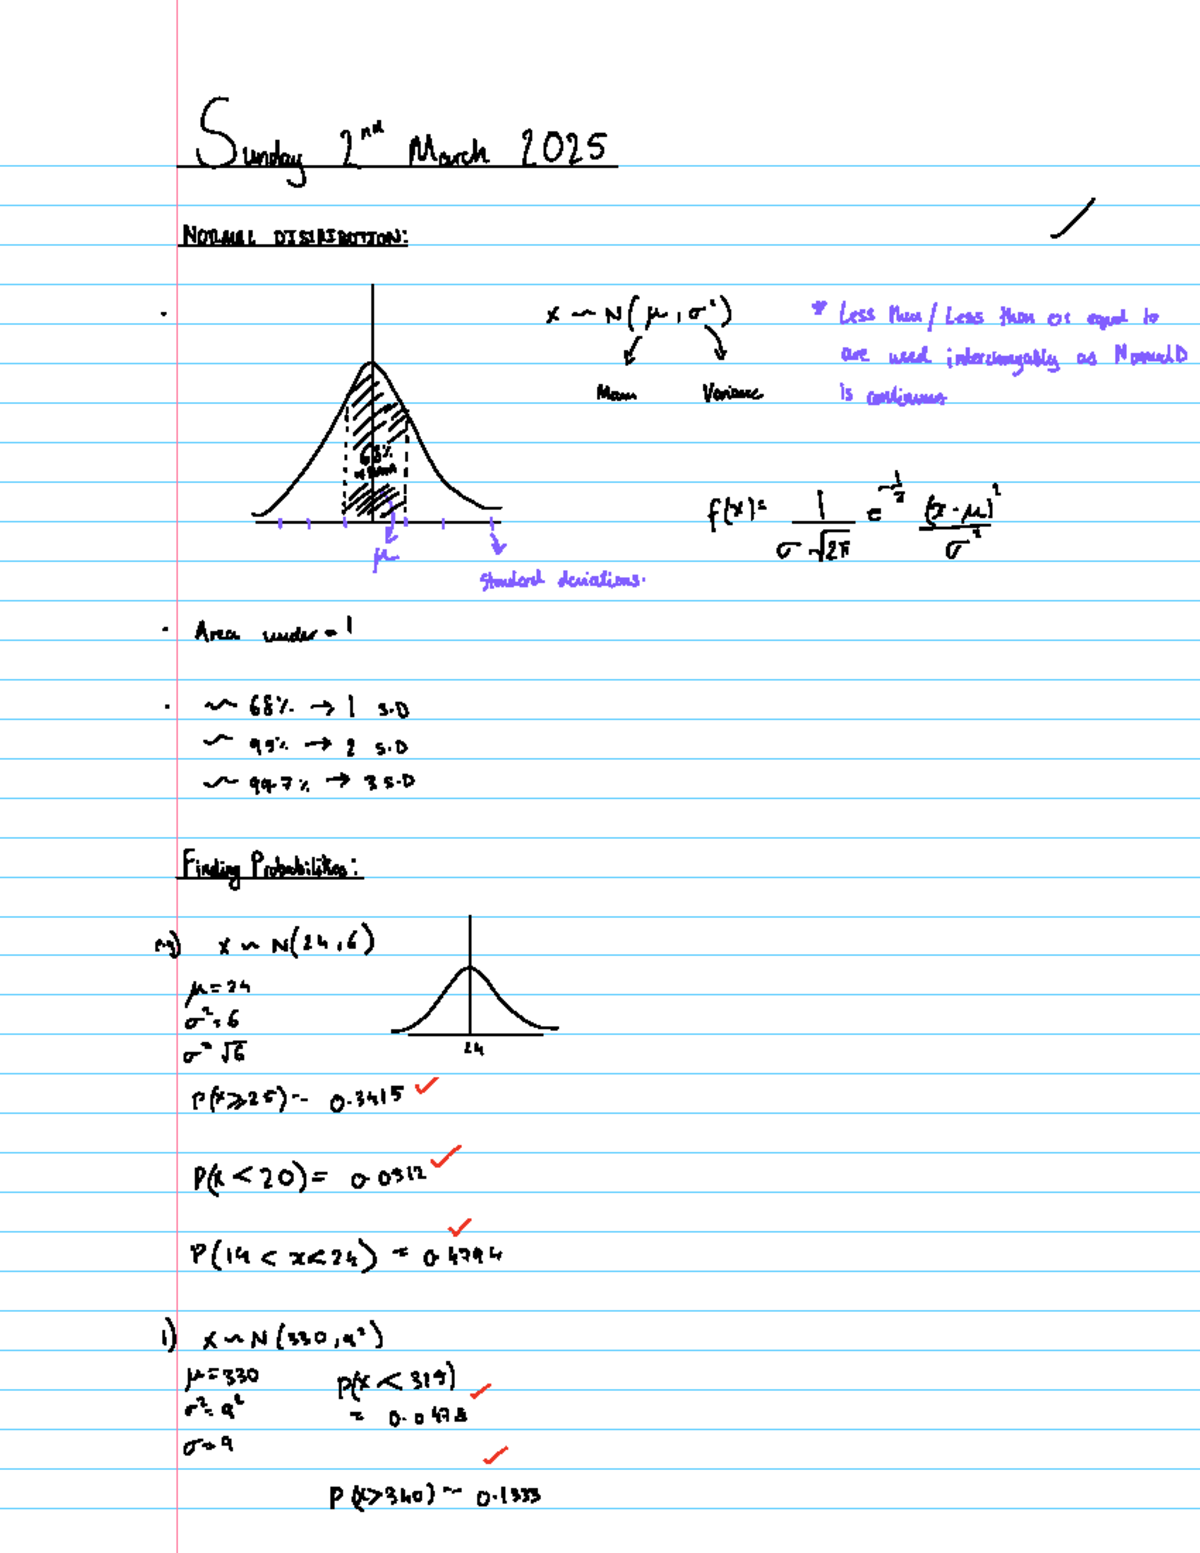 Sunday 2nd March 2025
NORMAL DISTRIBUTION:
X ~ N(μ, σ²)
Mean Variance
* Less than / Less than or equal to
are used interchangably as Normal D
is continuous
68%
μ
Standard deviations.
f(x) = 1/(σ√2π) e^-1/2 (x-μ)²/σ²
· Area under = 1
· ~ 68% → 1 S.D
~ 95% → 2 S.D
~ 99.7% → 3 S.D
Finding Probabilities:
eg) X ~ N(24, 6)
μ = 24
σ² = 6
σ = √6
24
P(X ≥ 25) = 0.3415 ✓
P(X < 20) = 0.0512 ✓
P(14 < x < 24) = 0.4794 ✓
1) X ~ N(330, 9²)
μ = 330
σ² = 9²
σ = 9
P(X < 315)
= 0.0478 ✓
P(X > 340) = 0.1333 ✓